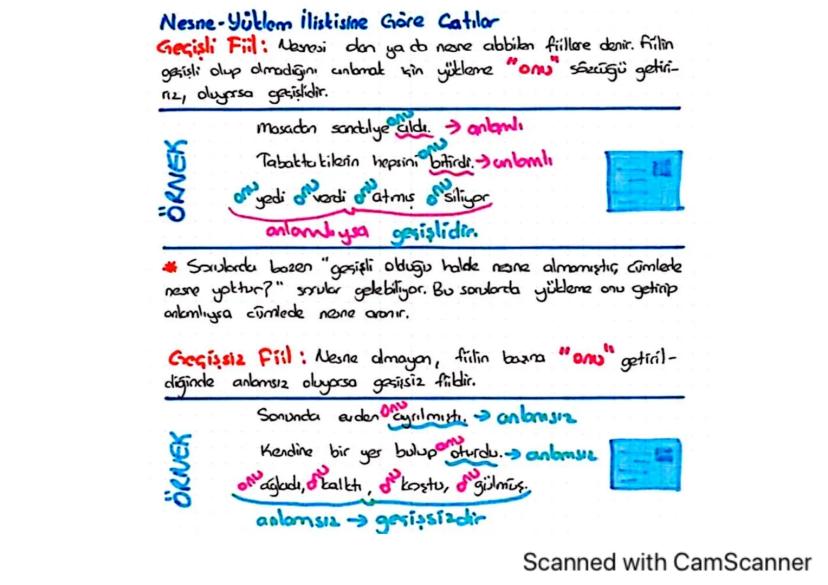 Nesne-Yüklem İlişkisine Göre Çatılar
Geçişli Fiil: Nesnesi olan ya da nesne alabilen fiillere denir. Fiilin
geçişli olup olmadığını anlamak için yükleme "onu" sözcüğü getiri-
riz, oluyorsa geçişlidir.
ÖRNEK
Masadan sandalye onu aldı. → anlamlı
Tabaktakilerin hepsini onu bitirdi. → anlamlı
onu yedi onu verdi onu atmış onu siliyor
anlamlıysa geçişlidir.
* Sorularda bazen "geçişli olduğu halde nesne almamıştır, cümlede
nesne yoktur?" sorular gelebiliyor. Bu sorularda yükleme onu getirip
anlamlıysa cümlede nesne aranır.
Geçişsiz Fiil: Nesne almayan, fiilin başına "onu" getiril-
diğinde anlamsız oluyorsa geçişsiz fiildir.
ÖRNEK
Sonunda evden onu ayrılmıştı. → anlamsız
Kendine bir yer bulup onu oturdu. → anlamsız
onu ağladı, onu kalktı, onu koştu, onu gülmüş.
anlamsız → geçişsizdir
Scanned with CamScanner